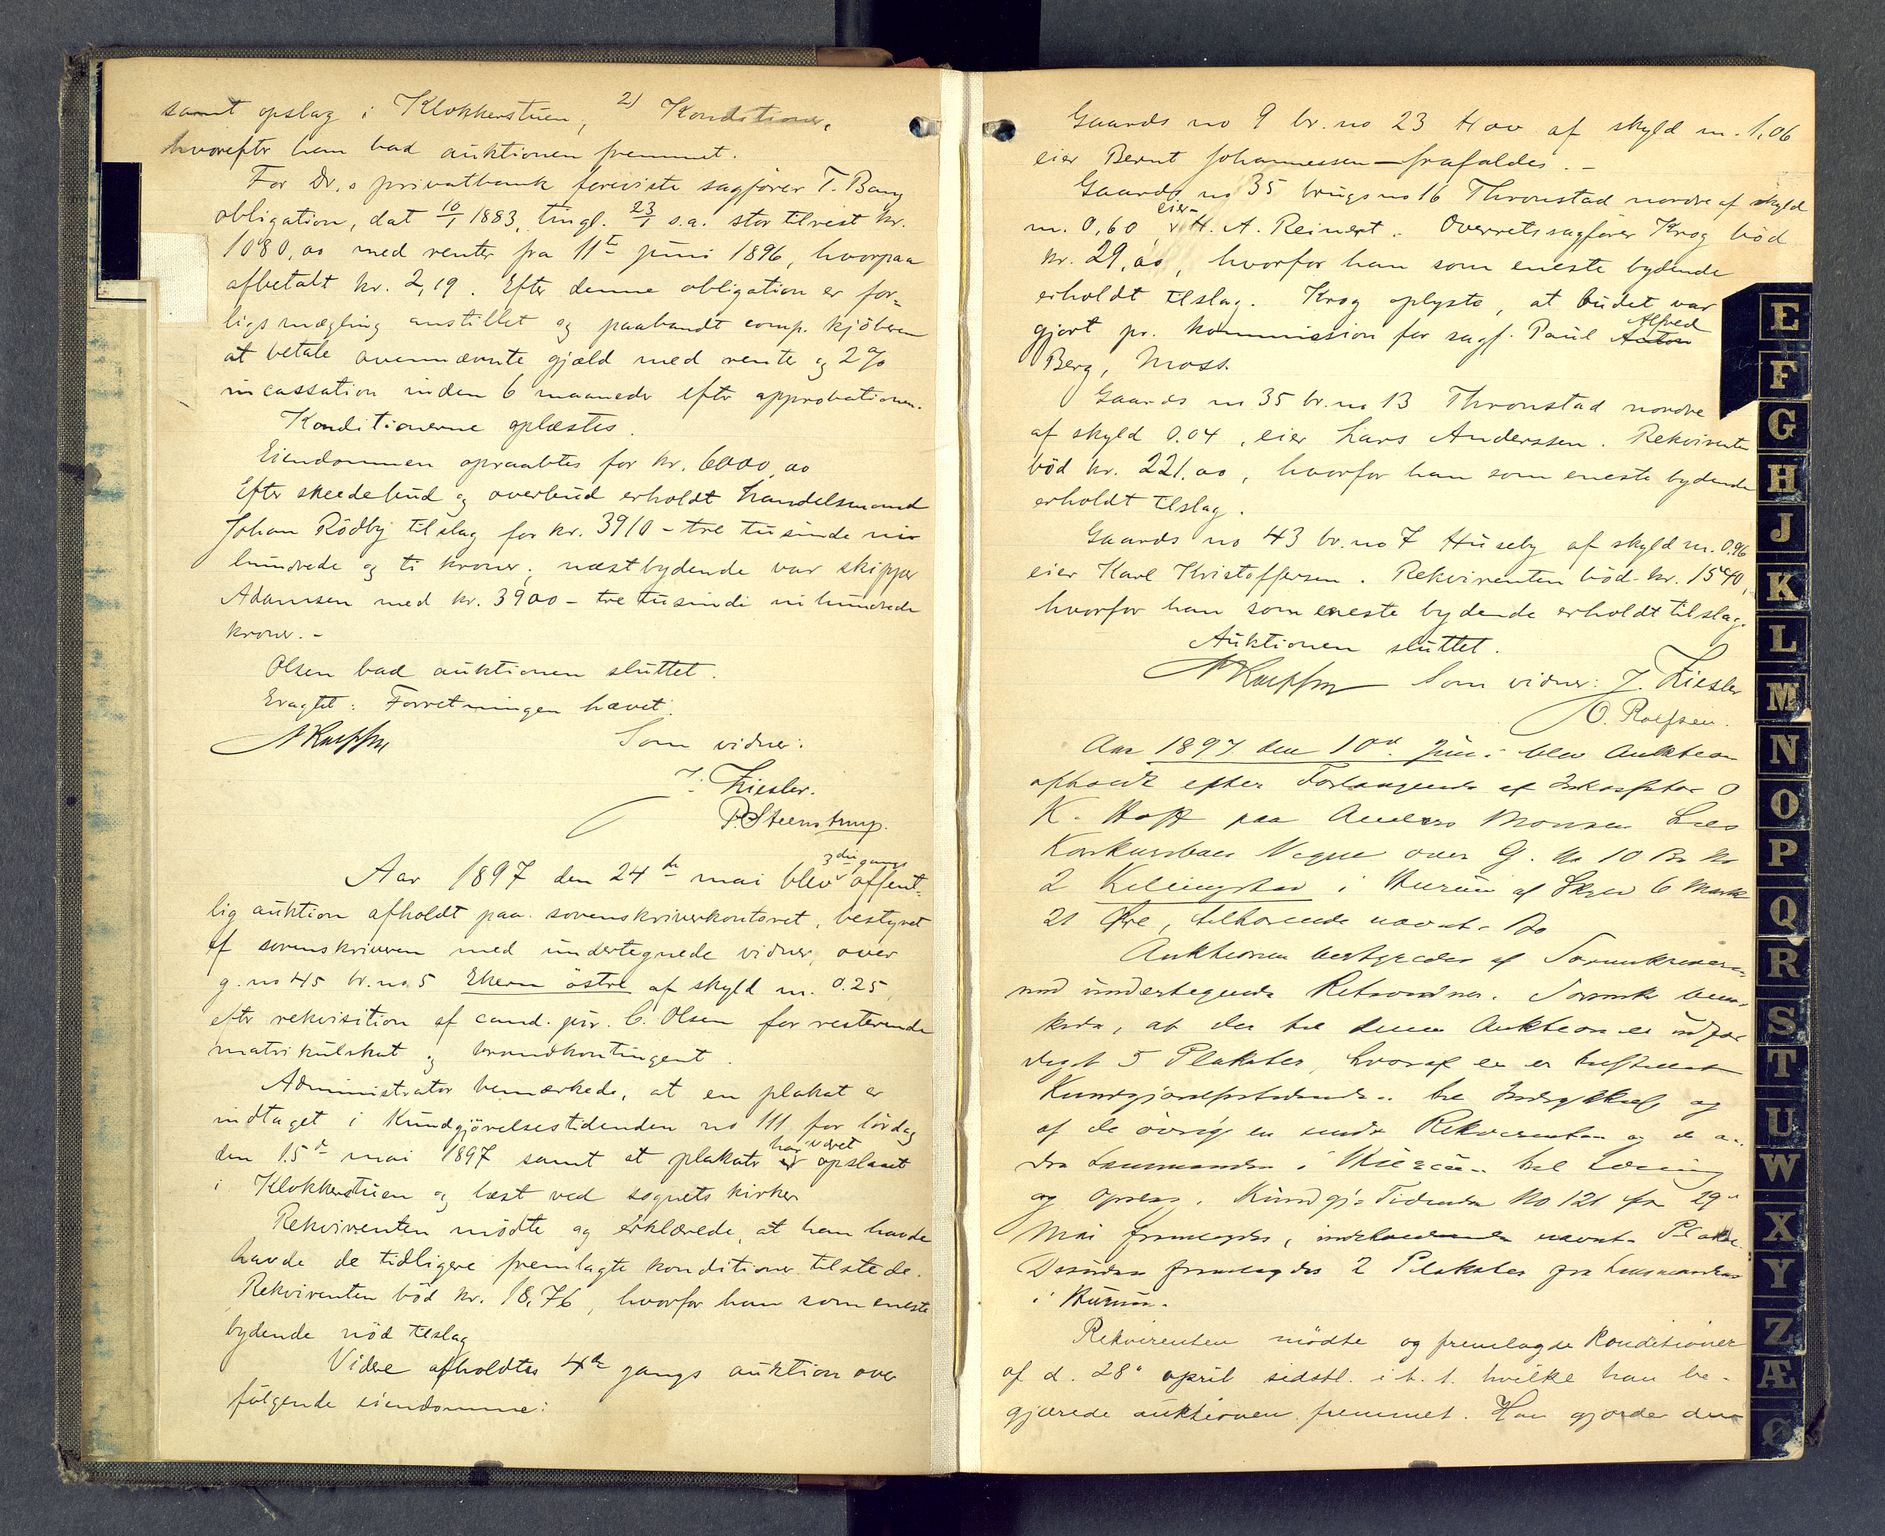 samt opslag i Klokkerstuen, 2) Konditioner,
hvorefter han bad auktionen fremmet.
For Dr.s privatbank foreviste sagfører T. Bang
obligation, dat 10/1 1883, tingl. 23/1 s.a. stor tilrest kr.
1080,00 med renter fra 11te juni 1896, hvorpaa
afbetalt kr. 2,19. Efter denne obligation er for-
ligsmægling anstillet og paabandt comp. kjöberen
at betale ovennævnte gjæld med rente og 2 %
incassation inden 6 maaneder efter approbationen.
Konditionerne oplæstes.
Eiendommen opraabtes for kr. 6000,00
Efter skeede bud og overbud erholdt handelsmand
Johan Rödby tilslag for kr. 3910 - tre tusinde ni
hundrede og ti kroner, næstbydende var skipper
Adamsen med kr. 3900 - tre tusinde ni hundrede
kroner. -
Olsen bad auktionen sluttet.
Eragtet: Forretningen hævet.
Som vidner:
J. Ziesler.
P. Steenstrup.
Aar 1897 den 24de mai blev 3die gangs offent-
lig auktion afholdt paa sorenskriverkontoret, bestyret
af sorenskriveren med undertegnede vidner, over
g. no 45 br. no 5 Ekern östre af skyld m. 0.25,
efter rekvisition af cand. jur. C. Olsen for resterende
matrikulskat og brandkontingent.
Administrator bemærkede, at en plakat er
indtaget i Kundgjörelsestidenden no 111 for lördag
den 15de mai 1897 samt at plakater har været opslaaet
i Klokkerstuen og læst ved sognets kirker
Rekvirenten mödte og erklærede, at han havde
havde de tidligere fremlagte konditioner tilstede.
Rekvirenten böd kr. 18,76, hvorfor han som eneste
bydende nöd tilslag
Videre afholdtes 4de gangs auktion over
fölgende eiendomme:
Gaards no 9 br. no 23 Hov af skyld m. 1,06
eier Bernt Johannessen - frafaldes. -
Gaards no 35 brugsno 16 Thronstad nordre af skyld
m. 0,60 eier H. A. Reinert. Overretssagförer Krog böd
kr. 29,00, hvorfor han som eneste bydende
erholdt tilslag. Krog oplyste, at budet var
gjort pr. kommission for sagf. Paul Anton Alfred
Berg, Moss.
Gaards no 35 br. no 13 Thronstad nordre
af skyld 0.04, eier Lars Anderssen. Rekvirenten
böd kr. 221.00, hvorfor han som eneste bydende
erholdt tilslag.
Gaards no 43 br. no 7 Huseby af skyld m. 0.96
eier Karl Kristoffersen. Rekvirenten böd kr. 1540,
hvorfor han som eneste bydende erholdt tilslag.
Auktionen sluttet.
Som vidner: J. Ziesler
O. Roefsen.
Aar 1897 den 10de Juni blev Auktion
afholdt efter Forlangende af O
K. Hoff paa Anders Monsen
Konkursboes Vegne over G. No 10 Br No
2 Killingstad i Hurum af Skyld 6 Mark
21 Øre, tilhørende nævnte Bo
Auktionen bestyredes af Sorenskriveren
med undertegnede Retsvidner. Sorensk. bem-
kede, at der til denne Auktion er udfær
diget 5 Plakater, hvoraf en er tilstillet
Kundgjørelsestidende til Indrykkelse og
af de övrige en sendt Rekvirenten og de an-
dre Lensmanden i Hurum til Læsning
og Opslag. Kundgj. Tidende No 121 for 29de
Mai fremlagdes, indeholdende nævnte Plakat.
Desuden fremlagdes 2 Plakater fra Lensmanden
i Hurum.
Rekvirenten mödte og fremlagde konditioner
af d. 28de april sidstl. i h. t. hvilke han be-
gjærede auktionen fremmet. Han gjorde der
E
F
G
H
J
K
L
M
N
O
P
Q
R
S
T
U
W
X
Y
Z
Æ
Ø